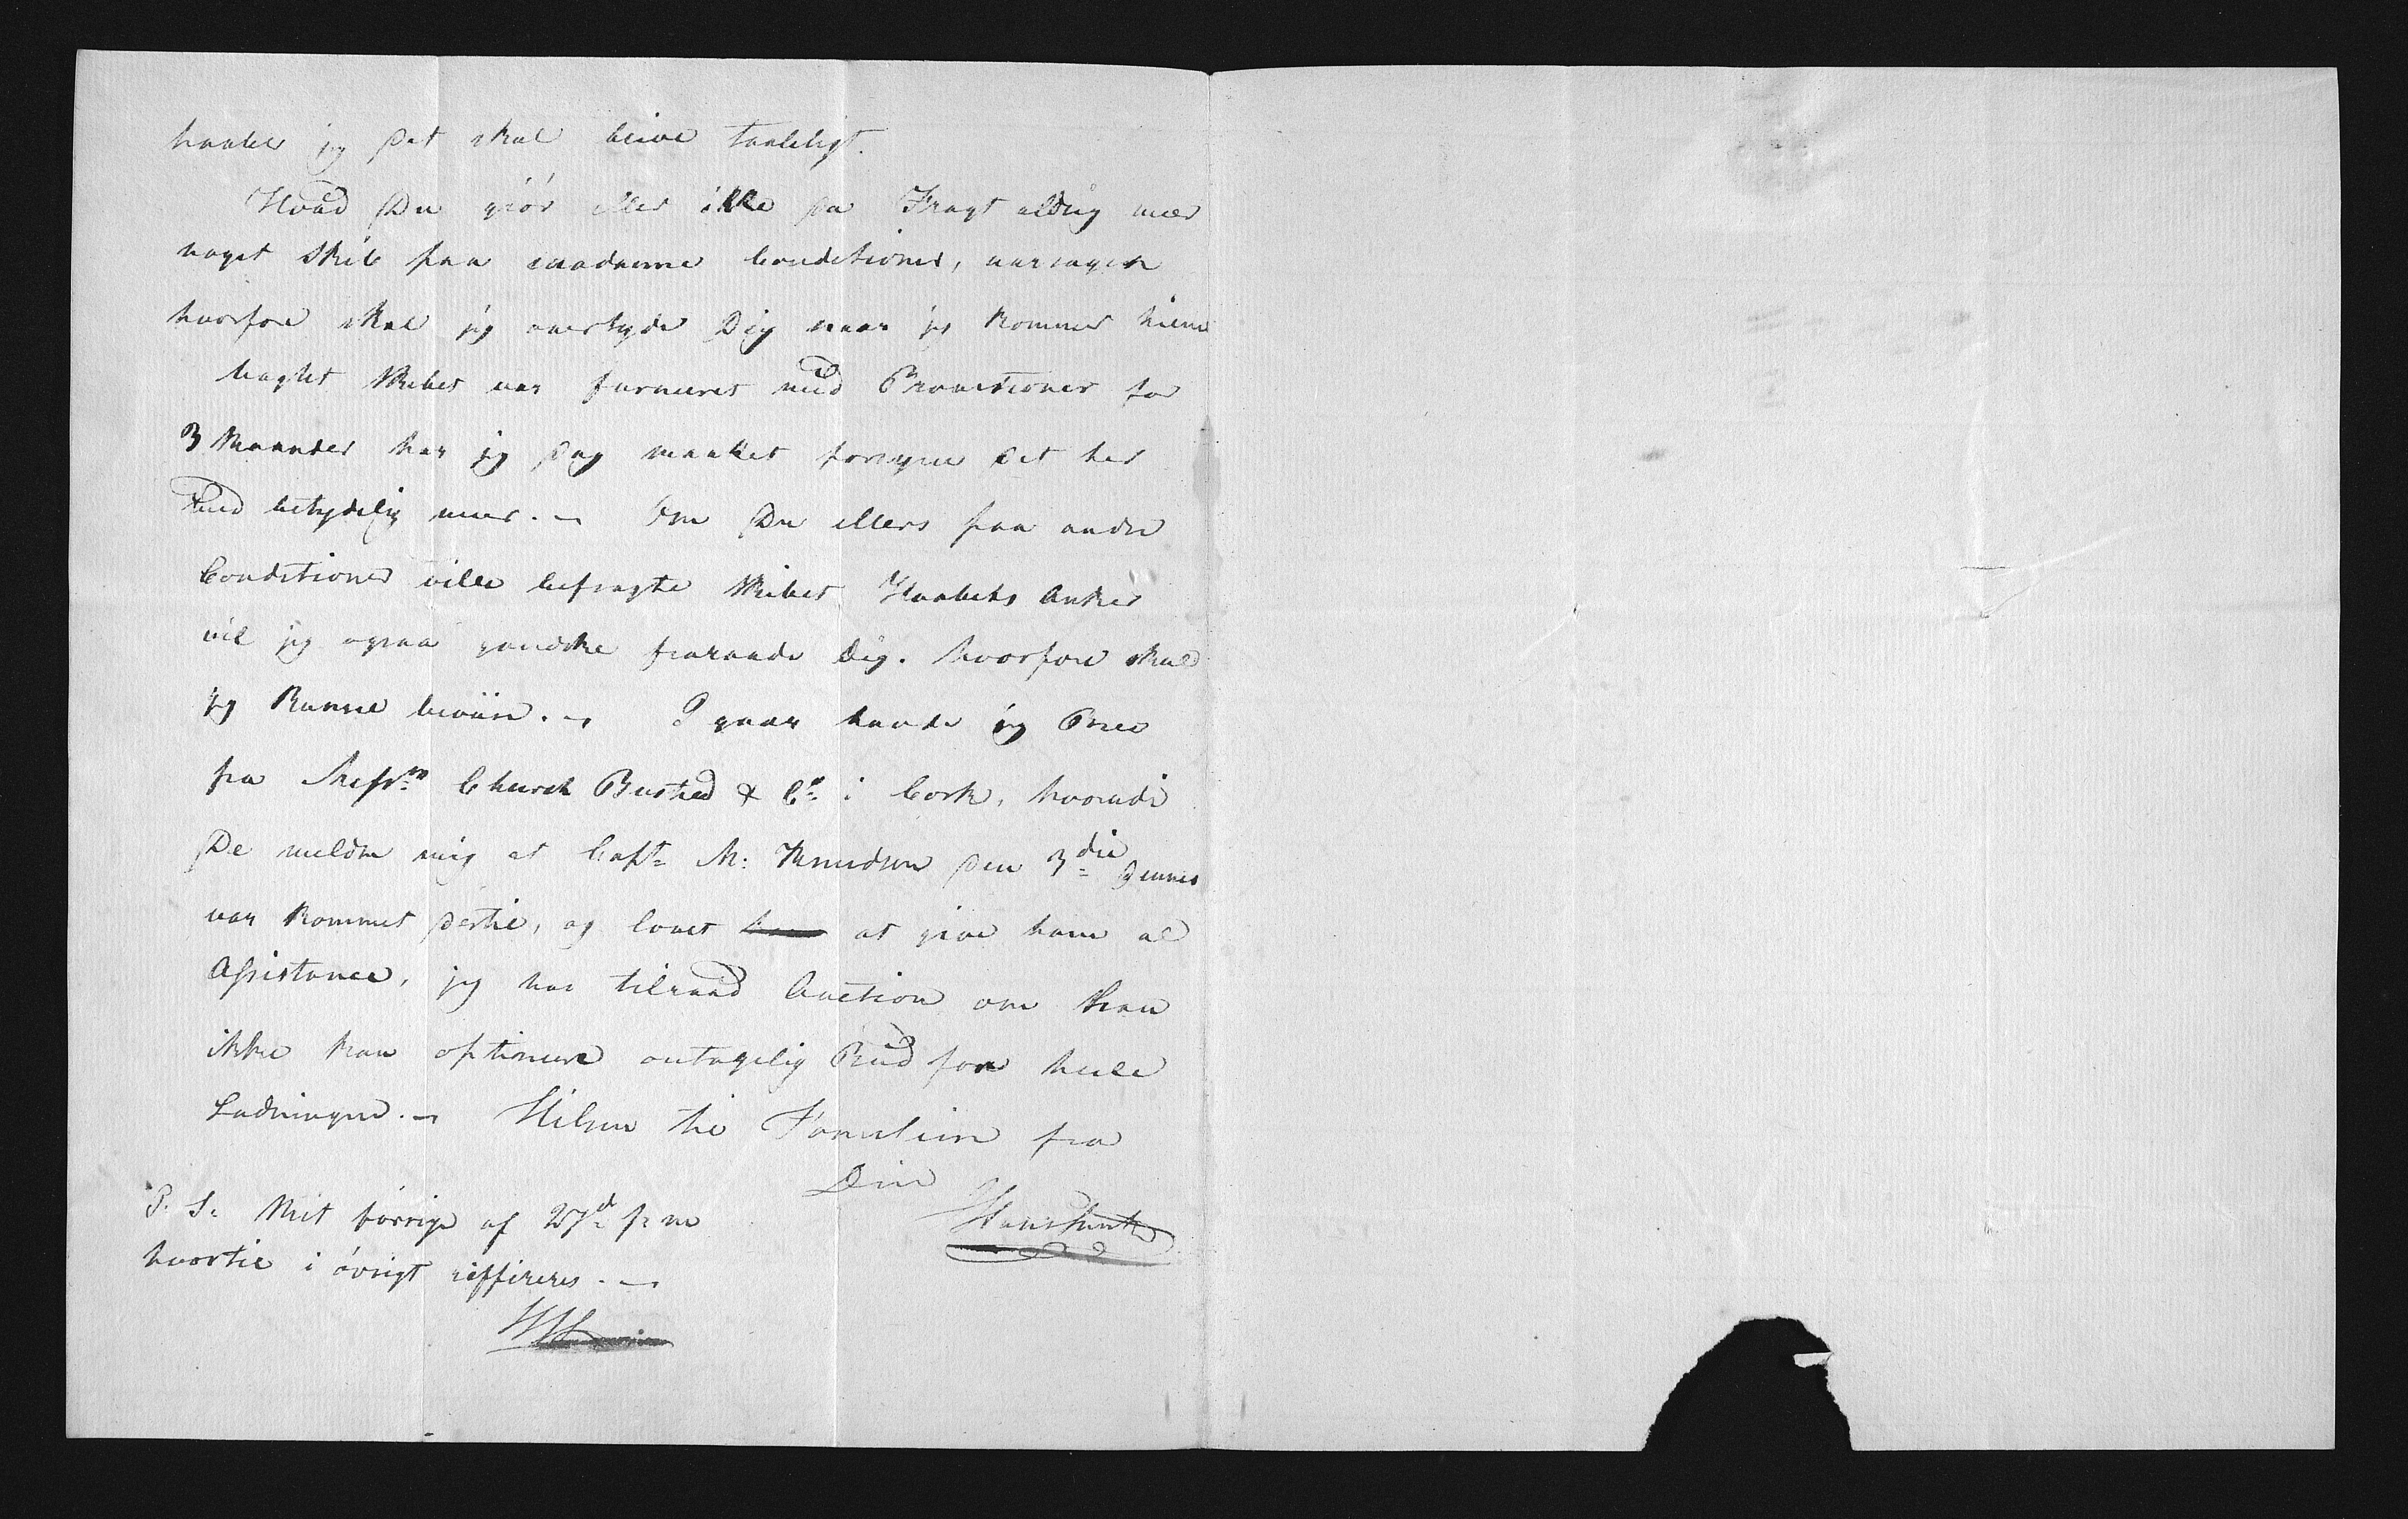 haaber jeg det skal blive taaleligt.
Hvad Du giør eller ikke saa Fragt aldrig meer
noget Skib paa saadanne Conditioner, aarsagen
hvorfore skal jeg overtyde Dig naar jeg kommer hiem
Uagtet Skibet var furneret med Provitioner for
3 Maander har jeg dog maattet forsyne det her
med betydelig meer. – Om Du ellers paa andre
Conditioner ville befragte Skibet Haabets Anker
vil jeg ogsaa gandske fraraade Dig. hvorfore skal
jeg kunne beviise. – I gaar havde jeg Brev
fra Messrs Church Busted & Co i Cork, hvorudi
De melder mig at Capt. M: Knudson den 3die Dennes
var kommet dertil, og lovet at give ham al
Assistance, jeg har tilraad Auction om Han
ikke kan optinere antagelig Bud for heele
Ladningen. – Hilsen til Familien fra
Din
P. S. Mit forrige af 27d p m
hvortil i øvrigt reffereres. –